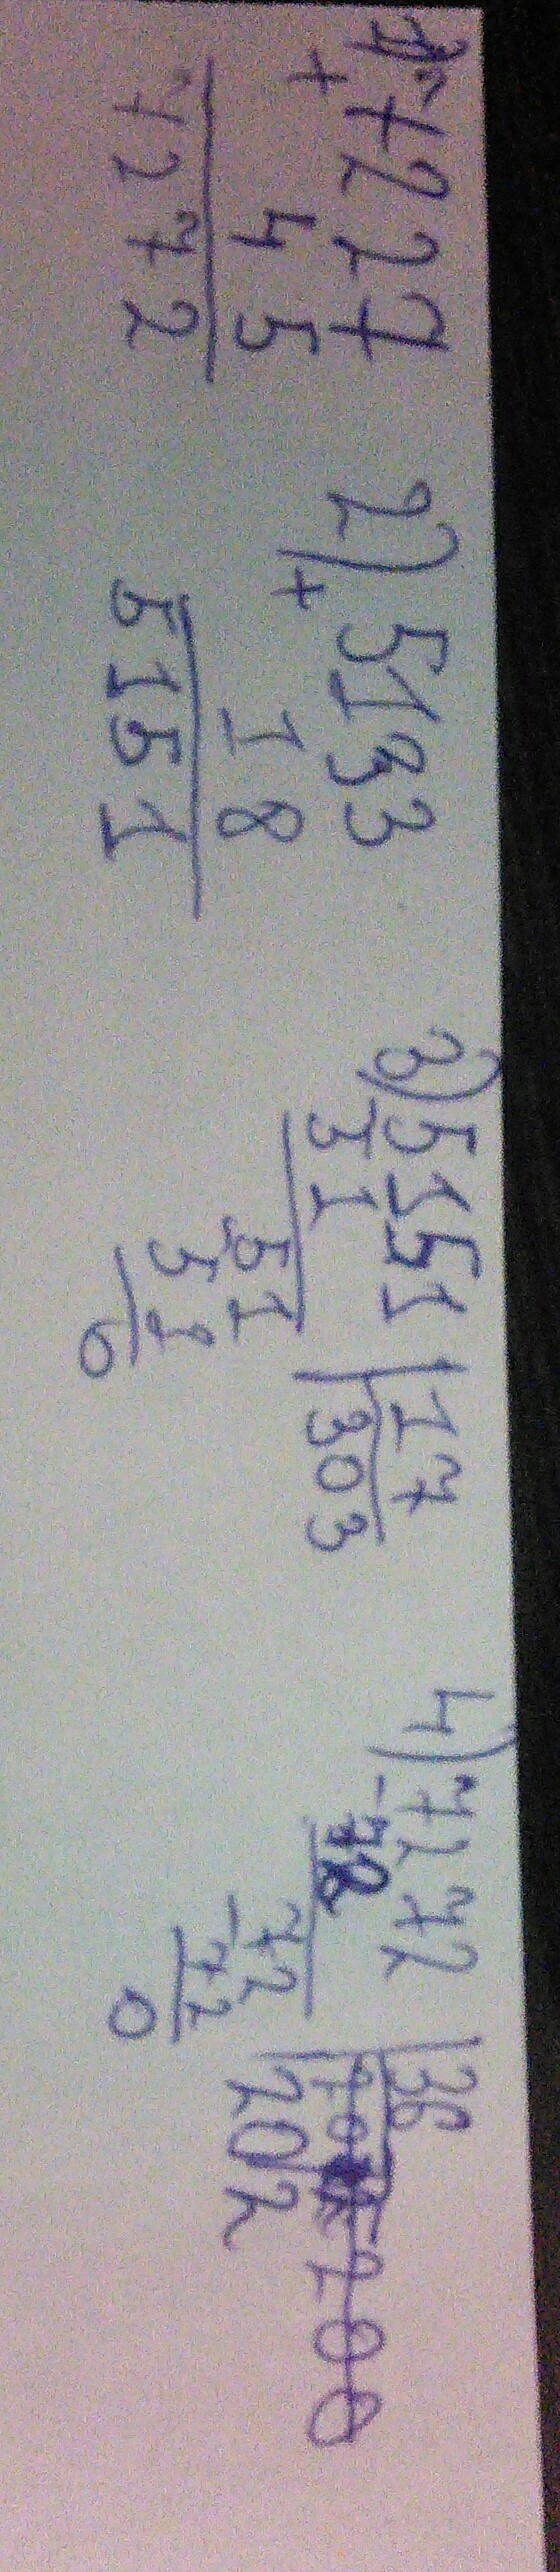 1) 7227
+
45
7272
2) 5133
+
18
5151
3) 5151 | 17
- 51 | 303
51
- 51
0
4) 7272 | 36
- 72
72 | 202
- 72
0